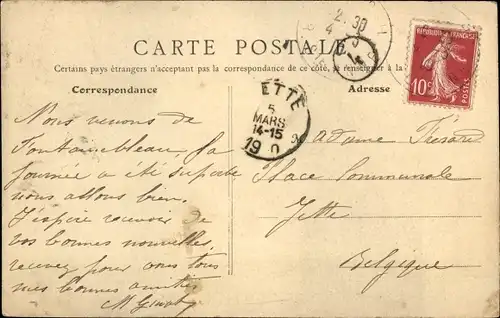 CARTE POSTALE
Certains pays étrangers n'acceptant pas la correspondance de ce côté, se renseigner à la
Correspondance
Adresse
REPUBLIQUE FRANÇAISE
10c
POSTES
ETTE
5
MARS
14-15
19 0
Nous venons de
Fontainebleau, la
journée a été superbe
nous allons bien.
J'espère recevoir de
vos bonnes nouvelles,
recevez pour vous tous
mes bonnes amitiés
Madame
Place Communale
Jette
Belgique